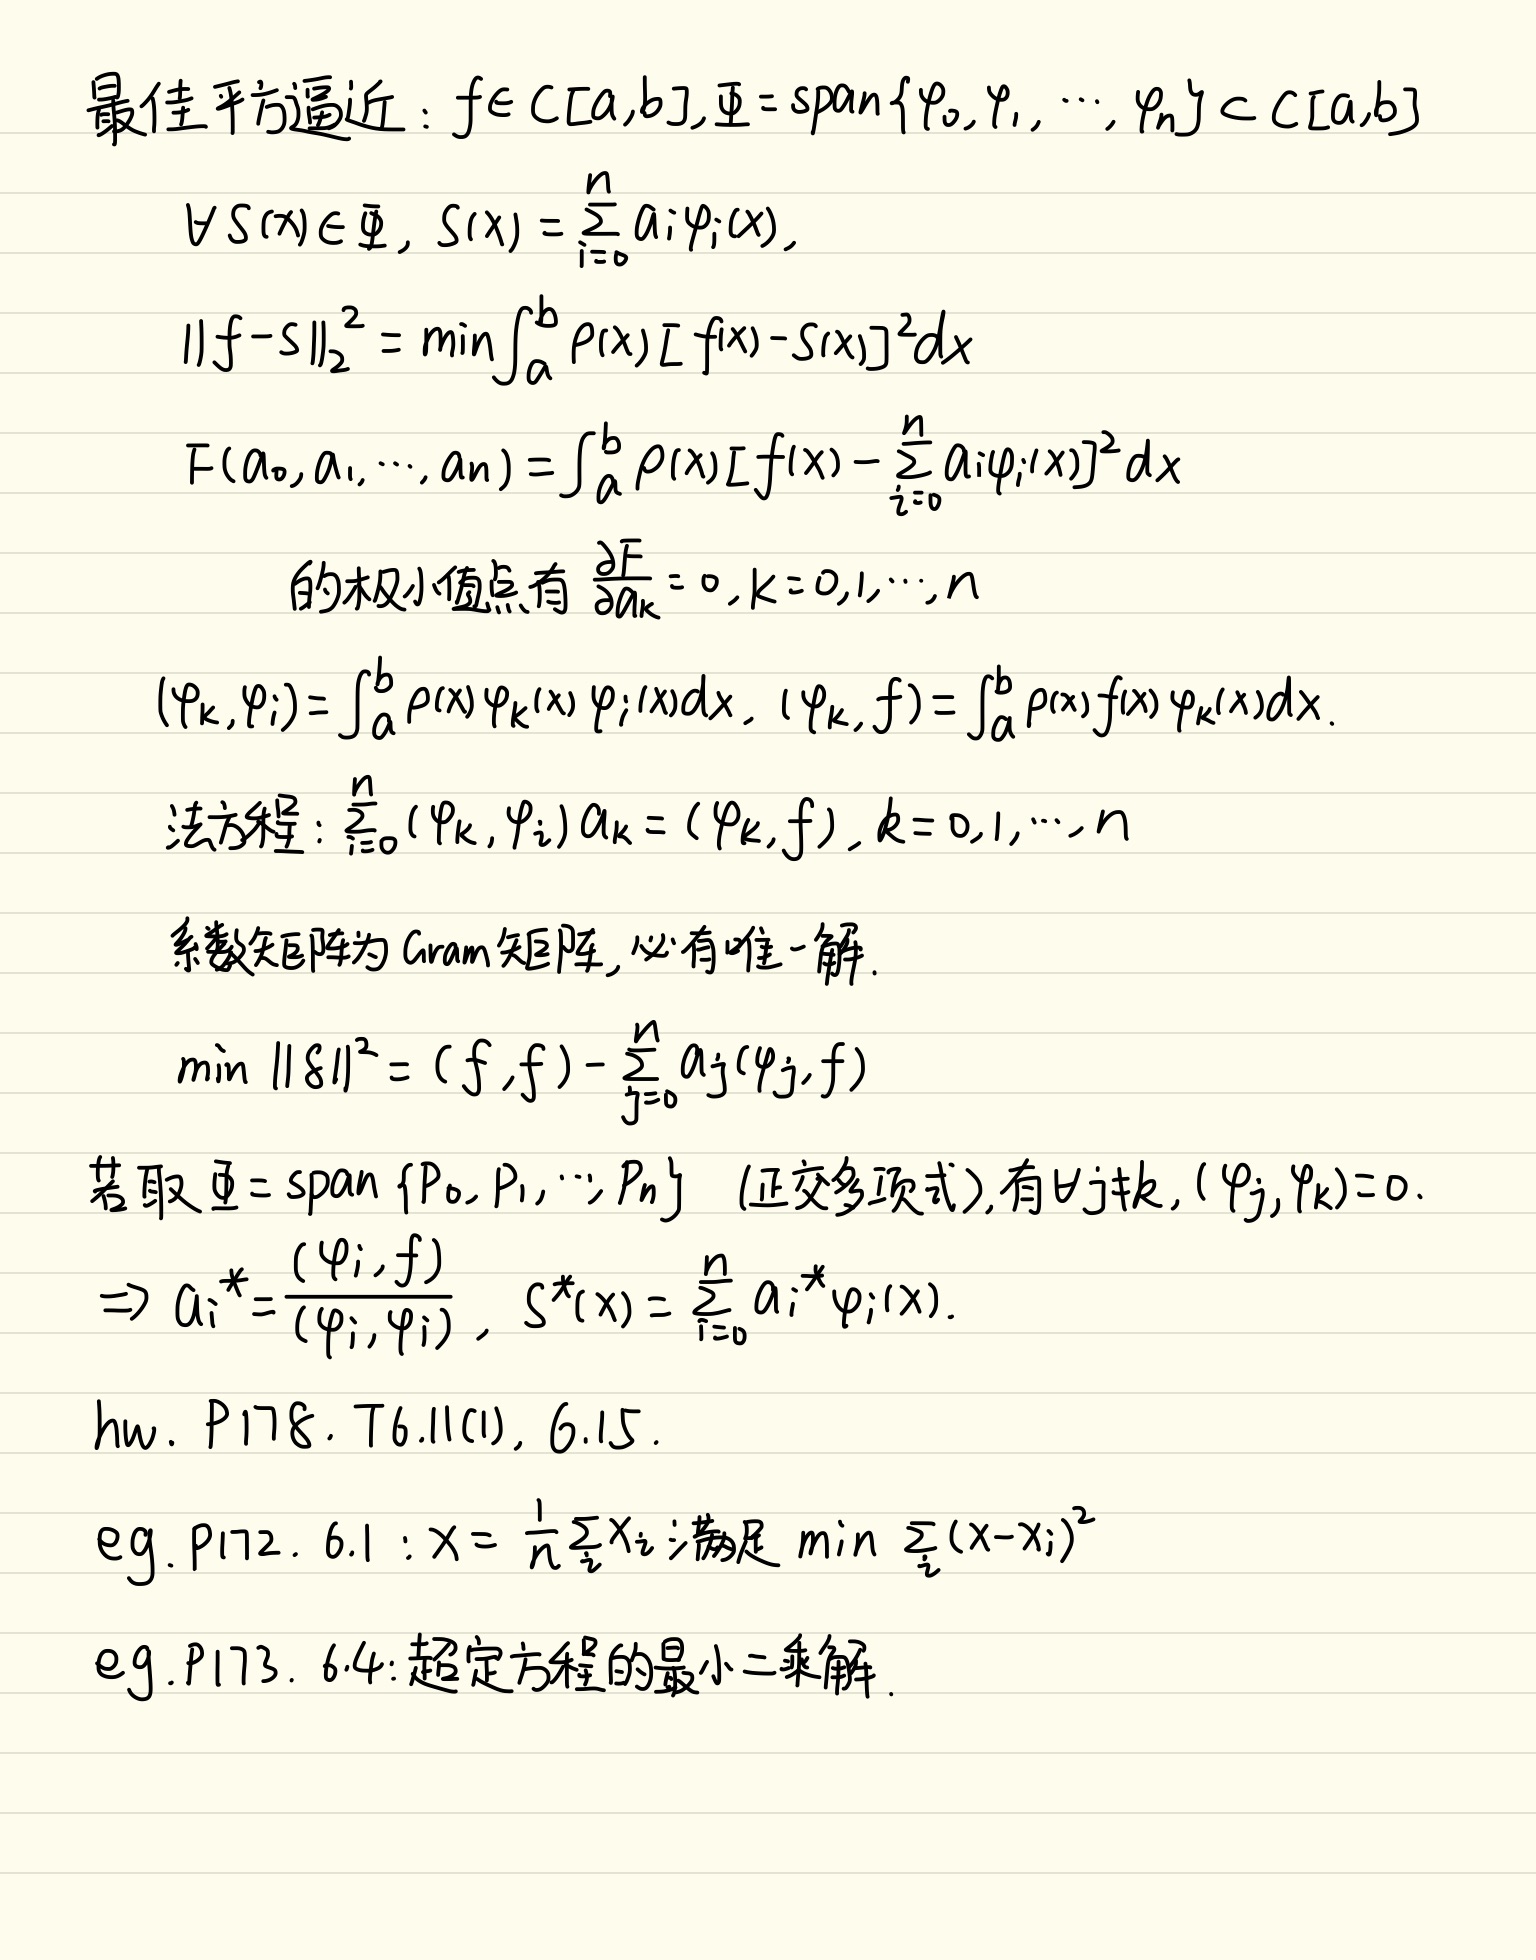 最佳平方逼近: f∈C[a,b], Φ=span{φ₀,φ₁,⋯,φₙ}⊂C[a,b]
∀S(x)∈Φ, S(x)=∑_{i=0}^{n} aᵢφᵢ(x),
‖f-S‖₂²=min∫_a^b ρ(x)[f(x)-S(x)]²dx
F(a₀,a₁,⋯,aₙ)=∫_a^b ρ(x)[f(x)-∑_{i=0}^{n} aᵢφᵢ(x)]²dx
的极小值点有 ∂F/∂a_k=0, k=0,1,⋯,n
(φ_k,φᵢ)=∫_a^b ρ(x)φ_k(x)φᵢ(x)dx, (φ_k,f)=∫_a^b ρ(x)f(x)φ_k(x)dx.
法方程: ∑_{i=0}^{n}(φ_k,φᵢ)a_k=(φ_k,f), k=0,1,⋯,n
系数矩阵为Gram矩阵,必有唯一解.
min ‖δ‖²=(f,f)-∑_{j=0}^{n} a_j(φ_j,f)
若取Φ=span{P₀,P₁,⋯,Pₙ} (正交多项式),有∀j≠k,(φ_j,φ_k)=0.
⇒ aᵢ*=(φᵢ,f)/(φᵢ,φᵢ), S*(x)=∑_{i=0}^{n} aᵢ*φᵢ(x).
hw. P178. T6.11(1), 6.15.
eg. P172. 6.1: x=1/n ∑_i xᵢ 满足 min ∑_i (x-xᵢ)²
eg. P173. 6.4: 超定方程的最小二乘解.